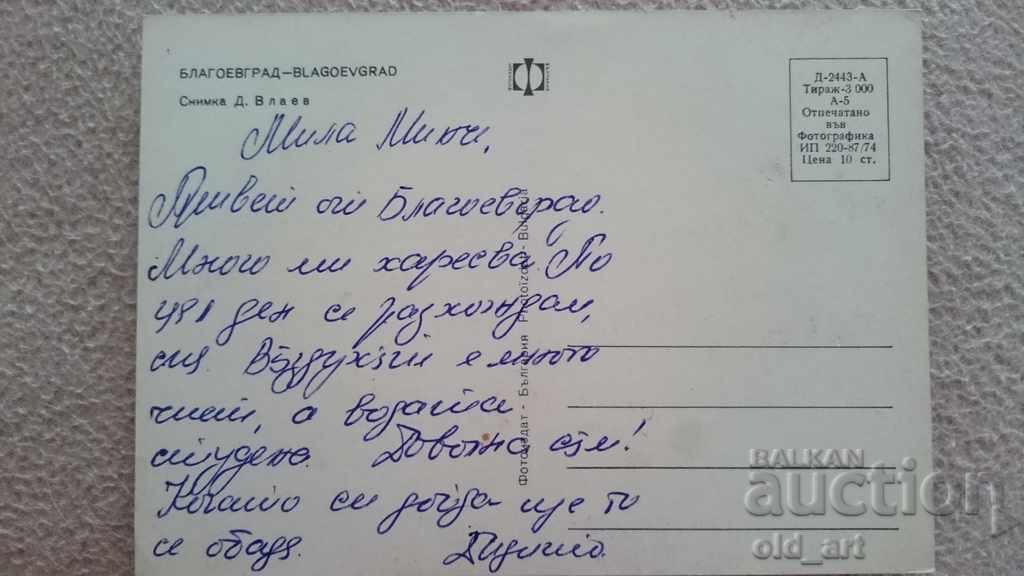 БЛАГОЕВГРАД—BLAGOEVGRAD
Снимка Д. Влаев
Д-2443-А
Тираж-3 000
А-5
Отпечатано
във
Фотографика
ИП 220-87/74
Цена 10 ст.
Мила Минче,
Привет от Благоевград.
Много ми харесва. По
цял ден се разхождам,
Въздухът е много
чист, а водата
студена. Доволна съм!
Когато си дойда ще ти
се обадя.
Фотоиздат - България Photoizdat - Bulgaria
BALKAN
auction
old_art